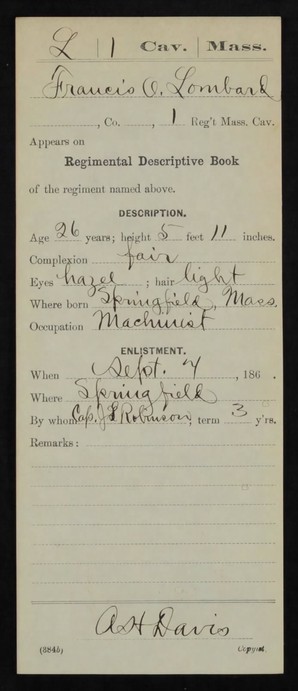 L | 1 | Cav. | Mass.
Francis O. Lombard
, Co. , 1 Reg't Mass. Cav.
Appears on
Regimental Descriptive Book
of the regiment named above.
DESCRIPTION.
Age 26 years; height 5 feet 11 inches.
Complexion fair
Eyes hazel ; hair light
Where born Springfield, Mass.
Occupation Machinist
ENLISTMENT.
When Sept. 7 , 186 .
Where Springfield
By whom Cap. J L Robinson; term 3 y'rs.
Remarks:
A H Davis
(3845) Copyist.